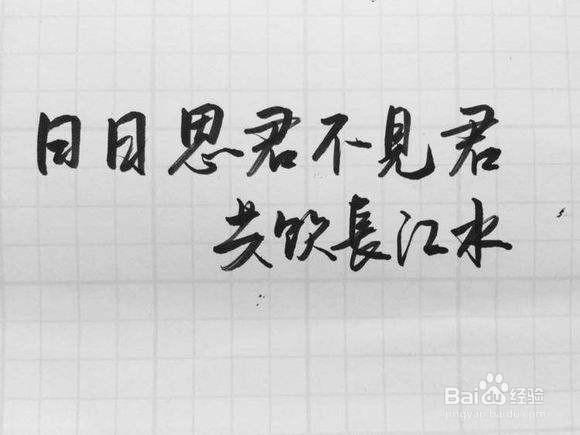 日日思君不見君
共飲長江水
Baidu 经验
jingyan.baidu.com